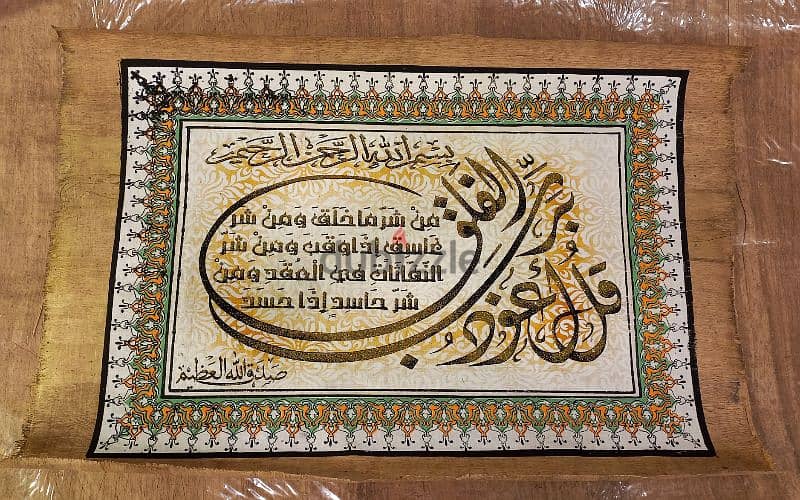 بسم الله الرحمن الرحيم
قل أعوذ برب الفلق
من شر ما خلق ومن شر
غاسق إذا وقب ومن شر
النفاثات في العقد ومن
شر حاسد إذا حسد
صدق الله العظيم
dubizzle